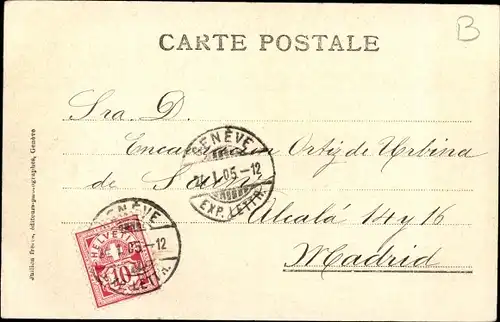 CARTE POSTALE
B
Sra. D.
Encarnación Ortiz de Urbina
de
Alcalá 14 y 16
Madrid
GENÈVE
I. 05-12
EXP. LETTR.
GENÈVE
I. 05-12
EXP. LETTR.
HELVETIA
10
Jullien frères, éditeurs-photographes, Genève